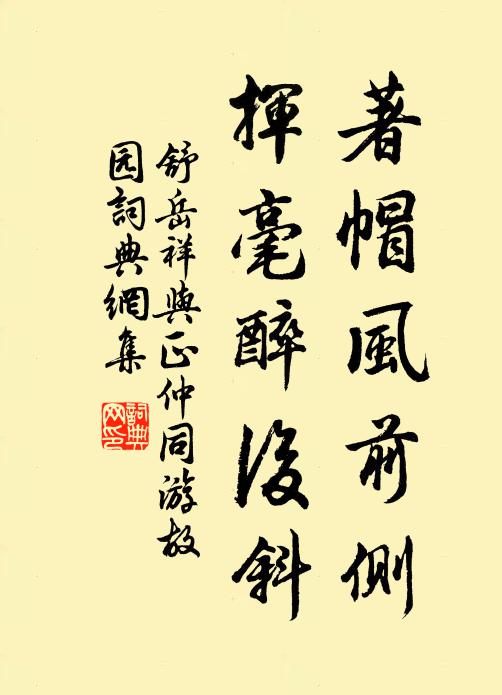 著帽風前側
揮毫醉後斜
舒岳祥與正仲同游故
园詞典網集
詞典网印